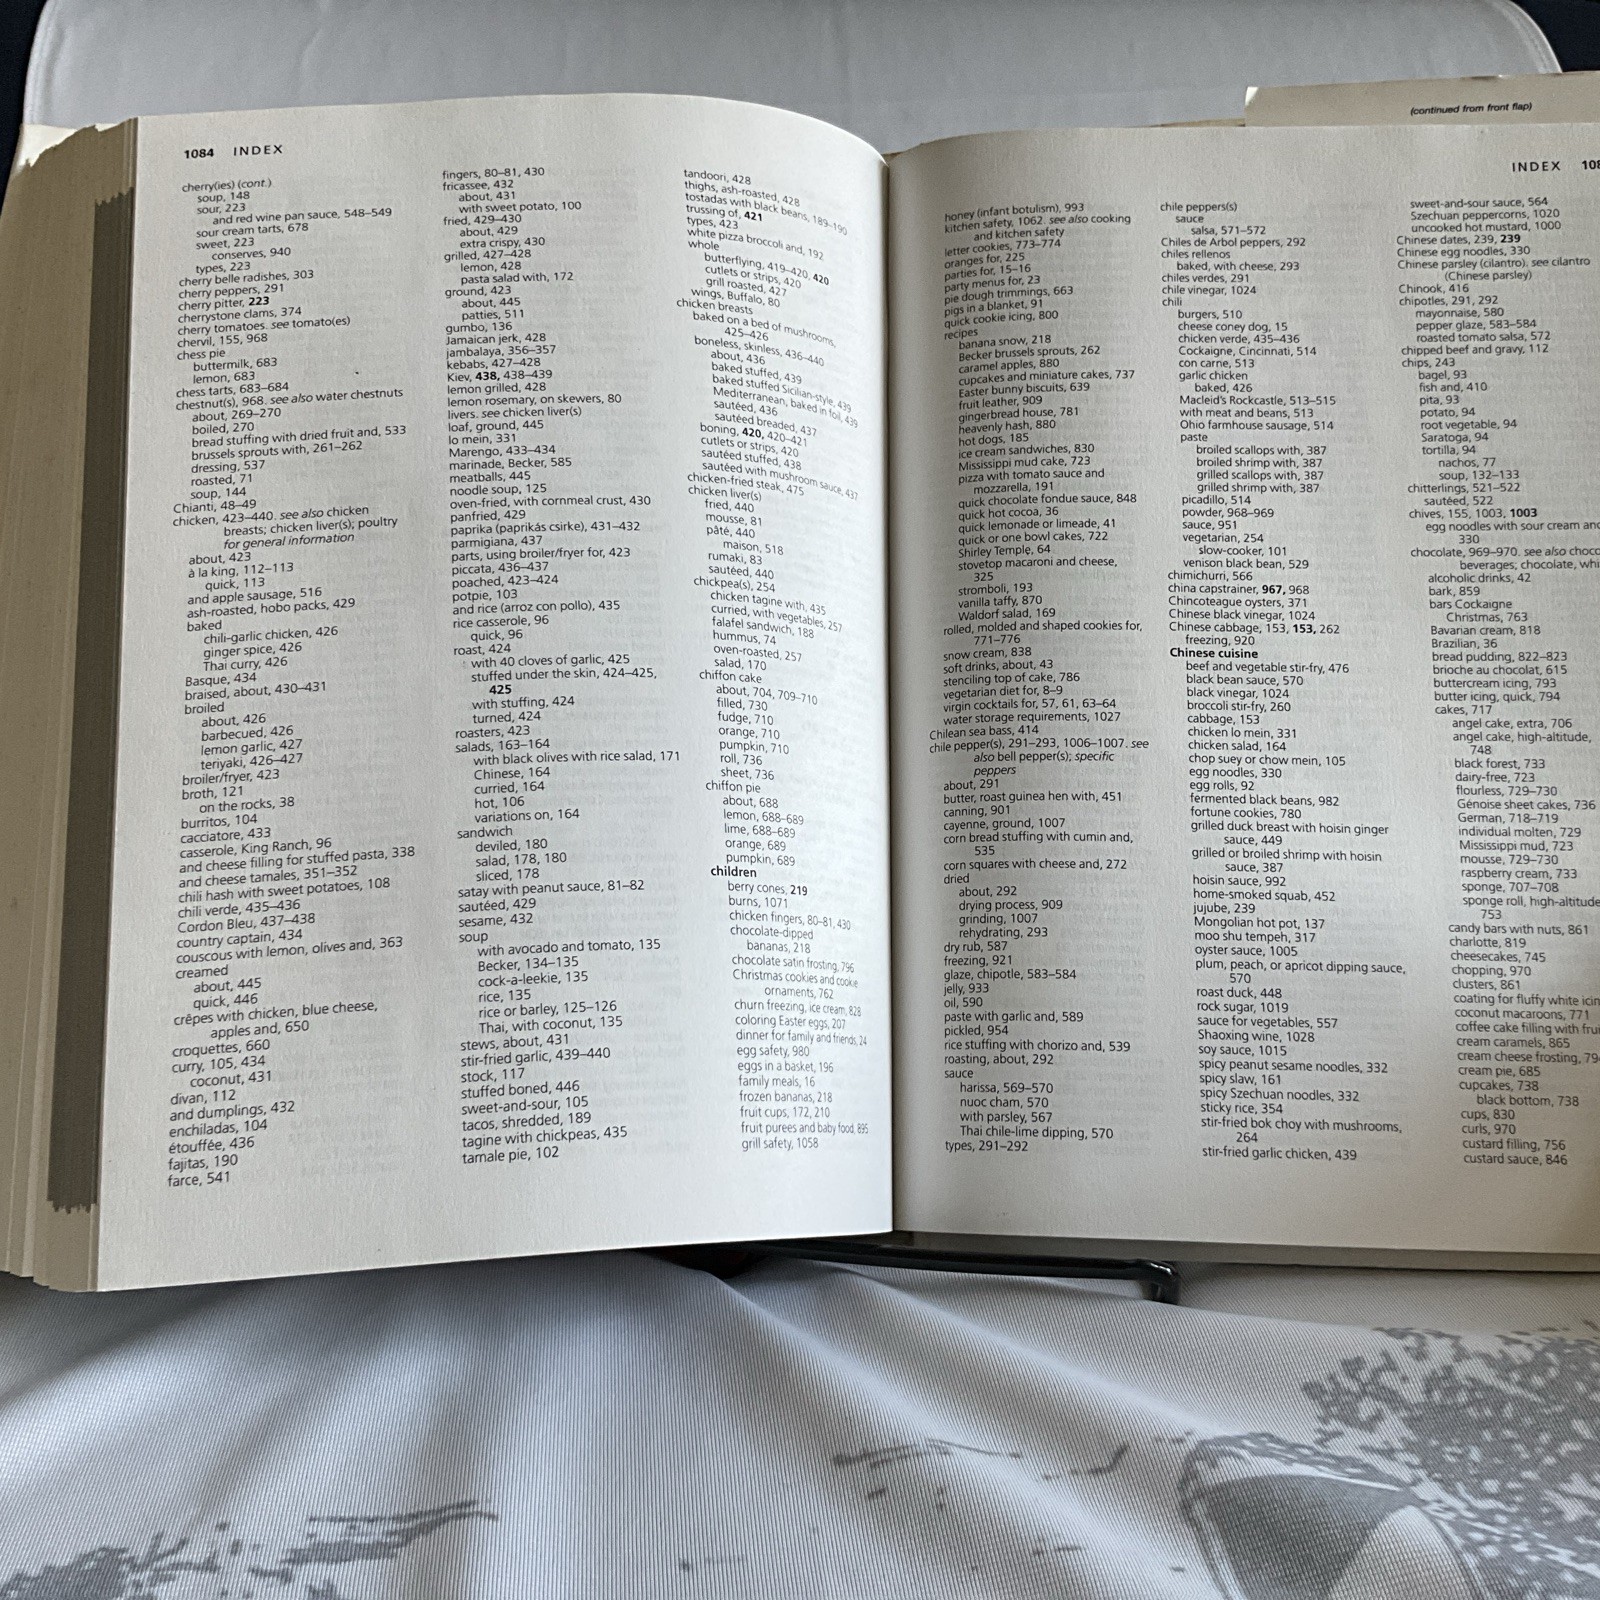 1084 INDEX
cherry(ies) (cont.)
soup, 148
sour, 223
and red wine pan sauce, 548–549
sour cream tarts, 678
sweet, 223
conserves, 940
types, 223
cherry belle radishes, 303
cherry peppers, 291
cherry pitter, 223
cherrystone clams, 374
cherry tomatoes. see tomato(es)
chervil, 155, 968
chess pie
buttermilk, 683
lemon, 683
chess tarts, 683–684
chestnut(s), 968. see also water chestnuts
about, 269–270
boiled, 270
bread stuffing with dried fruit and, 533
brussels sprouts with, 261–262
dressing, 537
roasted, 71
soup, 144
Chianti, 48–49
chicken, 423–440. see also chicken
breasts; chicken liver(s); poultry
for general information
about, 423
à la king, 112–113
quick, 113
and apple sausage, 516
ash-roasted, hobo packs, 429
baked
chili-garlic chicken, 426
ginger spice, 426
Thai curry, 426
Basque, 434
braised, about, 430–431
broiled
about, 426
barbecued, 426
lemon garlic, 427
teriyaki, 426–427
broiler/fryer, 423
broth, 121
on the rocks, 38
burritos, 104
cacciatore, 433
casserole, King Ranch, 96
and cheese filling for stuffed pasta, 338
and cheese tamales, 351–352
chili hash with sweet potatoes, 108
chili verde, 435–436
Cordon Bleu, 437–438
country captain, 434
couscous with lemon, olives and, 363
creamed
about, 445
quick, 446
crêpes with chicken, blue cheese,
apples and, 650
croquettes, 660
curry, 105, 434
coconut, 431
divan, 112
and dumplings, 432
enchiladas, 104
étouffée, 436
fajitas, 190
farce, 541
fingers, 80–81, 430
fricassee, 432
about, 431
with sweet potato, 100
fried, 429–430
about, 429
extra crispy, 430
grilled, 427–428
lemon, 428
pasta salad with, 172
ground, 423
about, 445
patties, 511
gumbo, 136
Jamaican jerk, 428
jambalaya, 356–357
kebabs, 427–428
Kiev, 438, 438–439
lemon grilled, 428
lemon rosemary, on skewers, 80
livers. see chicken liver(s)
loaf, ground, 445
lo mein, 331
Marengo, 433–434
marinade, Becker, 585
meatballs, 445
noodle soup, 125
oven-fried, with cornmeal crust, 430
panfried, 429
paprika (paprikás csirke), 431–432
parmigiana, 437
parts, using broiler/fryer for, 423
piccata, 436–437
poached, 423–424
potpie, 103
and rice (arroz con pollo), 435
rice casserole, 96
quick, 96
roast, 424
with 40 cloves of garlic, 425
stuffed under the skin, 424–425,
425
with stuffing, 424
turned, 424
roasters, 423
salads, 163–164
with black olives with rice salad, 171
Chinese, 164
curried, 164
hot, 106
variations on, 164
sandwich
deviled, 180
salad, 178, 180
sliced, 178
satay with peanut sauce, 81–82
sautéed, 429
sesame, 432
soup
with avocado and tomato, 135
Becker, 134–135
cock-a-leekie, 135
rice, 135
rice or barley, 125–126
Thai, with coconut, 135
stews, about, 431
stir-fried garlic, 439–440
stock, 117
stuffed boned, 446
sweet-and-sour, 105
tacos, shredded, 189
tagine with chickpeas, 435
tamale pie, 102
tandoori, 428
thighs, ash-roasted, 428
tostadas with black beans, 189–190
trussing of, 421
types, 423
white pizza broccoli and, 192
whole
butterflying, 419–420, 420
cutlets or strips, 420
grill roasted, 427
wings, Buffalo, 80
chicken breasts
baked on a bed of mushrooms,
425–426
boneless, skinless, 436–440
about, 436
baked stuffed, 439
baked stuffed Sicilian-style, 439
Mediterranean, baked in foil, 439
sautéed, 436
sautéed breaded, 437
boning, 420, 420–421
cutlets or strips, 420
sautéed stuffed, 438
sautéed with mushroom sauce, 437
chicken-fried steak, 475
chicken liver(s)
fried, 440
mousse, 81
pâté, 440
maison, 518
rumaki, 83
sautéed, 440
chickpea(s), 254
chicken tagine with, 435
curried, with vegetables, 257
falafel sandwich, 188
hummus, 74
oven-roasted, 257
salad, 170
chiffon cake
about, 704, 709–710
filled, 730
fudge, 710
orange, 710
pumpkin, 710
roll, 736
sheet, 736
chiffon pie
about, 688
lemon, 688–689
lime, 688–689
orange, 689
pumpkin, 689
children
berry cones, 219
burns, 1071
chicken fingers, 80–81, 430
chocolate-dipped
bananas, 218
chocolate satin frosting, 796
Christmas cookies and cookie
ornaments, 762
churn freezing, ice cream, 828
coloring Easter eggs, 207
dinner for family and friends, 24
egg safety, 980
eggs in a basket, 196
family meals, 16
frozen bananas, 218
fruit cups, 172, 210
fruit purees and baby food, 895
grill safety, 1058
(continued from front flap)
INDEX 108
honey (infant botulism), 993
kitchen safety, 1062. see also cooking
and kitchen safety
letter cookies, 773–774
oranges for, 225
parties for, 15–16
party menus for, 23
pie dough trimmings, 663
pigs in a blanket, 91
quick cookie icing, 800
recipes
banana snow, 218
Becker brussels sprouts, 262
caramel apples, 880
cupcakes and miniature cakes, 737
Easter bunny biscuits, 639
fruit leather, 909
gingerbread house, 781
heavenly hash, 880
hot dogs, 185
ice cream sandwiches, 830
Mississippi mud cake, 723
pizza with tomato sauce and
mozzarella, 191
quick chocolate fondue sauce, 848
quick hot cocoa, 36
quick lemonade or limeade, 41
quick or one bowl cakes, 722
Shirley Temple, 64
stovetop macaroni and cheese,
325
stromboli, 193
vanilla taffy, 870
Waldorf salad, 169
rolled, molded and shaped cookies for,
771–776
snow cream, 838
soft drinks, about, 43
stenciling top of cake, 786
vegetarian diet for, 8–9
virgin cocktails for, 57, 61, 63–64
water storage requirements, 1027
Chilean sea bass, 414
chile pepper(s), 291–293, 1006–1007. see
also bell pepper(s); specific
peppers
about, 291
butter, roast guinea hen with, 451
canning, 901
cayenne, ground, 1007
corn bread stuffing with cumin and,
535
corn squares with cheese and, 272
dried
about, 292
drying process, 909
grinding, 1007
rehydrating, 293
dry rub, 587
freezing, 921
glaze, chipotle, 583–584
jelly, 933
oil, 590
paste with garlic and, 589
pickled, 954
rice stuffing with chorizo and, 539
roasting, about, 292
sauce
harissa, 569–570
nuoc cham, 570
with parsley, 567
Thai chile-lime dipping, 570
types, 291–292
chile peppers(s)
sauce
salsa, 571–572
Chiles de Arbol peppers, 292
chiles rellenos
baked, with cheese, 293
chiles verdes, 291
chile vinegar, 1024
chili
burgers, 510
cheese coney dog, 15
chicken verde, 435–436
Cockaigne, Cincinnati, 514
con carne, 513
garlic chicken
baked, 426
Macleid's Rockcastle, 513–515
with meat and beans, 513
Ohio farmhouse sausage, 514
paste
broiled scallops with, 387
broiled shrimp with, 387
grilled scallops with, 387
grilled shrimp with, 387
picadillo, 514
powder, 968–969
sauce, 951
vegetarian, 254
slow-cooker, 101
venison black bean, 529
chimichurri, 566
china capstrainer, 967, 968
Chincoteague oysters, 371
Chinese black vinegar, 1024
Chinese cabbage, 153, 153, 262
freezing, 920
Chinese cuisine
beef and vegetable stir-fry, 476
black bean sauce, 570
black vinegar, 1024
broccoli stir-fry, 260
cabbage, 153
chicken lo mein, 331
chicken salad, 164
chop suey or chow mein, 105
egg noodles, 330
egg rolls, 92
fermented black beans, 982
fortune cookies, 780
grilled duck breast with hoisin ginger
sauce, 449
grilled or broiled shrimp with hoisin
sauce, 387
hoisin sauce, 992
home-smoked squab, 452
jujube, 239
Mongolian hot pot, 137
moo shu tempeh, 317
oyster sauce, 1005
plum, peach, or apricot dipping sauce,
570
roast duck, 448
rock sugar, 1019
sauce for vegetables, 557
Shaoxing wine, 1028
soy sauce, 1015
spicy peanut sesame noodles, 332
spicy slaw, 161
spicy Szechuan noodles, 332
sticky rice, 354
stir-fried bok choy with mushrooms,
264
stir-fried garlic chicken, 439
sweet-and-sour sauce, 564
Szechuan peppercorns, 1020
uncooked hot mustard, 1000
Chinese dates, 239, 239
Chinese egg noodles, 330
Chinese parsley (cilantro). see cilantro
(Chinese parsley)
Chinook, 416
chipotles, 291, 292
mayonnaise, 580
pepper glaze, 583–584
roasted tomato salsa, 572
chipped beef and gravy, 112
chips, 243
bagel, 93
fish and, 410
pita, 93
potato, 94
root vegetable, 94
Saratoga, 94
tortilla, 94
nachos, 77
soup, 132–133
chitterlings, 521–522
sautéed, 522
chives, 155, 1003, 1003
egg noodles with sour cream and
330
chocolate, 969–970. see also choco
beverages; chocolate, whi
alcoholic drinks, 42
bark, 859
bars Cockaigne
Christmas, 763
Bavarian cream, 818
Brazilian, 36
bread pudding, 822–823
brioche au chocolat, 615
buttercream icing, 793
butter icing, quick, 794
cakes, 717
angel cake, extra, 706
angel cake, high-altitude,
748
black forest, 733
dairy-free, 723
flourless, 729–730
Génoise sheet cakes, 736
German, 718–719
individual molten, 729
Mississippi mud, 723
mousse, 729–730
raspberry cream, 733
sponge, 707–708
sponge roll, high-altitude
753
candy bars with nuts, 861
charlotte, 819
cheesecakes, 745
chopping, 970
clusters, 861
coating for fluffy white icin
coconut macaroons, 771
coffee cake filling with frui
cream caramels, 865
cream cheese frosting, 79
cream pie, 685
cupcakes, 738
black bottom, 738
cups, 830
curls, 970
custard filling, 756
custard sauce, 846